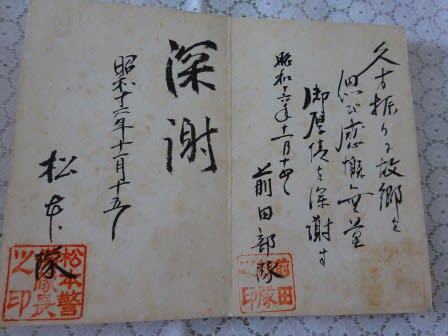 久方振りに故郷を
思ひ感慨無量
御厚情を深謝す
昭和十六年十一月十四日
前田部隊
前田
隊
印
深謝
昭和十六年十一月十五日
松本隊
松本警
隊長
之印